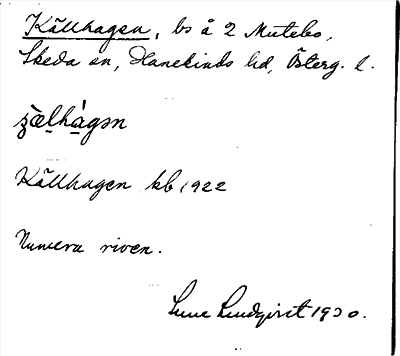 Källhagen, bs å 2 Mutebo,
Skeda sn, Hanekinds hd, Österg. l.
Källhagen kb 1922
Numera riven.
Sune Lindqvist 1930.